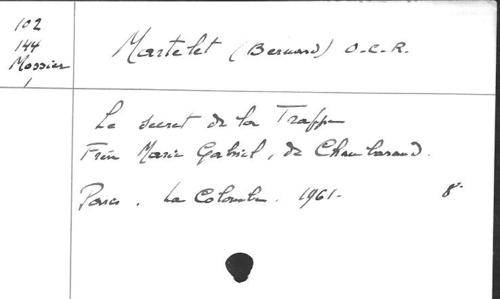 102
144
Mossier
1
Martelet (Bernard) O.C.R.
Le secret de la Trappe
Frère Marie Gabriel, de Chambarand.
Paris. La Colombe. 1961. 8°